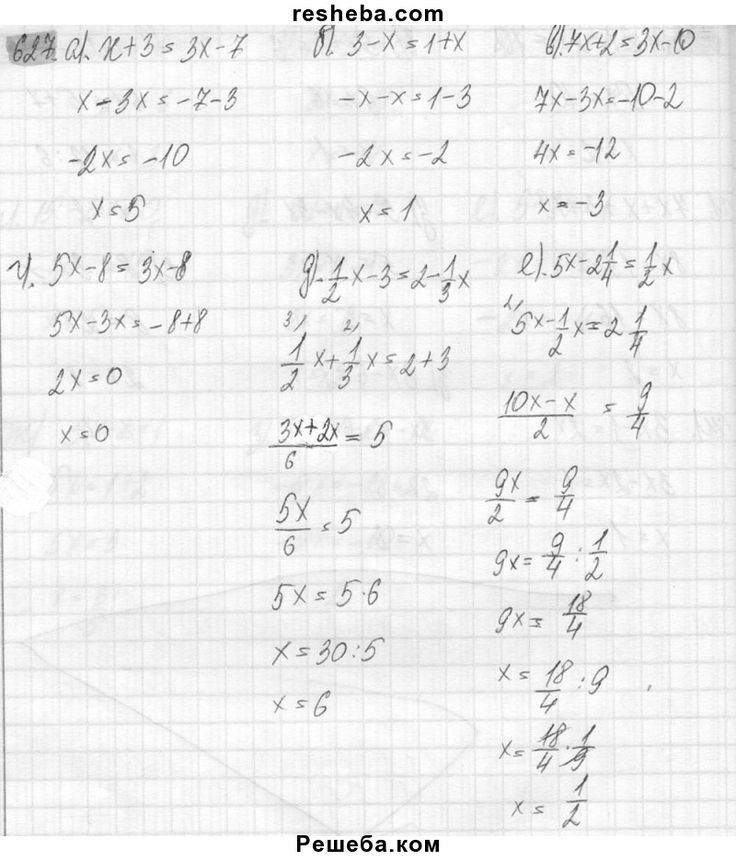 resheba.com
627. а). x+3=3x-7
x-3x=-7-3
-2x=-10
x=5
б). 3-x=1+x
-x-x=1-3
-2x=-2
x=1
в). 7x+2=3x-10
7x-3x=-10-2
4x=-12
x=-3
г). 5x-8=3x-8
5x-3x=-8+8
2x=0
x=0
д). 1/2 x-3=2-1/3 x
3) 2)
1/2 x+1/3 x=2+3
(3x+2x)/6=5
5x/6=5
5x=5·6
x=30:5
x=6
е). 5x-2 1/4=1/2 x
2)
5x-1/2 x=2 1/4
(10x-x)/2=9/4
9x/2=9/4
9x=9/4:1/2
9x=18/4
x=18/4:9
x=18/4·1/9
x=1/2
Решеба.ком